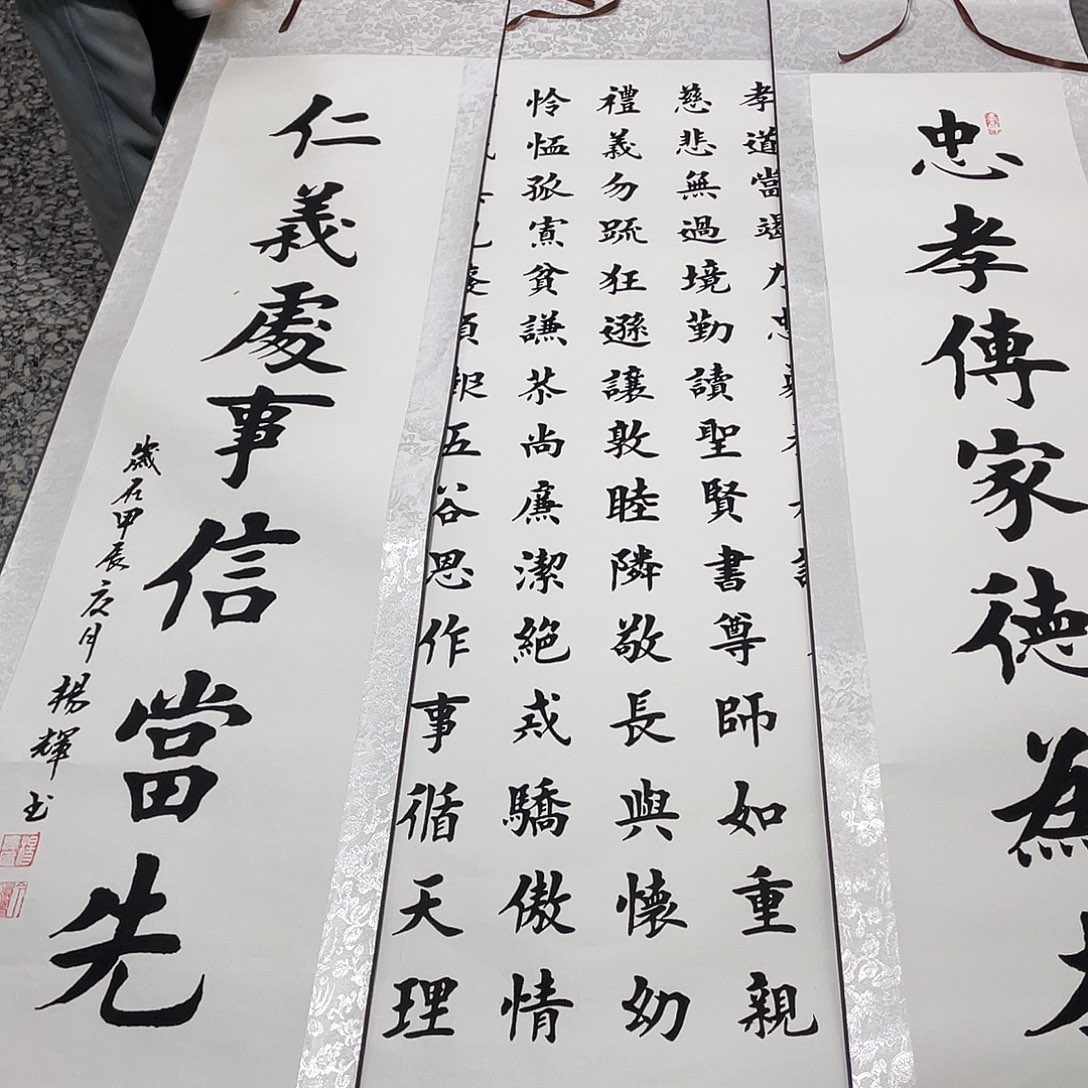 忠孝傳家徳為
孝道當竭
慈悲無過境勤讀聖賢書尊師如重親
禮義勿疏狂遜讓敦睦隣敬長與懷幼
怜恤孤寡貧謙恭尚廉潔絕戒驕傲情
五谷恩作事循天理
仁義處事信當先
歲在甲辰夏月楊輝书